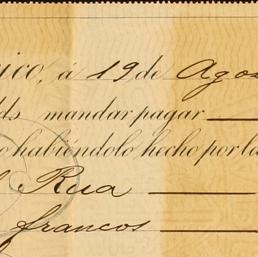 ico, á 19 de Agos
ds mandar pagar
o habiéndolo hecho por la
Rua
francos